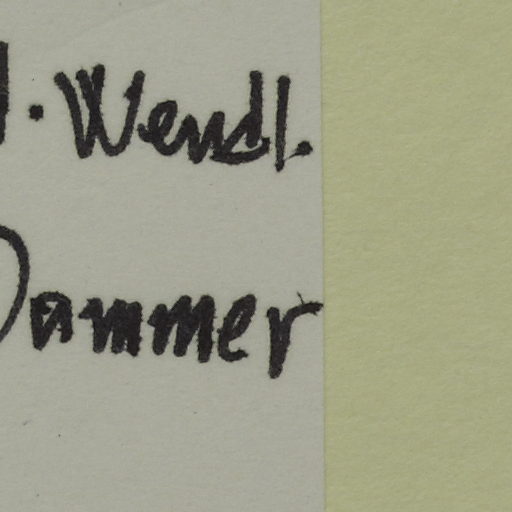 . Wendl.
Dammer